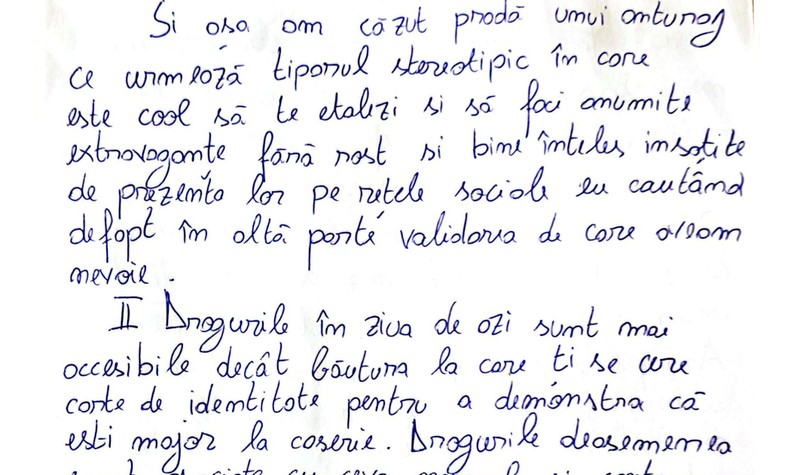 Si asa am căzut pradă unui anturaj
ce urmează tiparul stereotipic în care
este cool să te etalezi si să faci anumite
extravaganțe fără rost si bine înteles insotite
de prezența lor pe retele sociale eu cautând
defapt în altă parte validarea de care aveam
nevoie.
II Drogurile în ziua de azi sunt mai
accesibile decât băutura la care ti se cere
carte de identitate pentru a demonstra că
esti major la caserie. Drogurile deasemenea